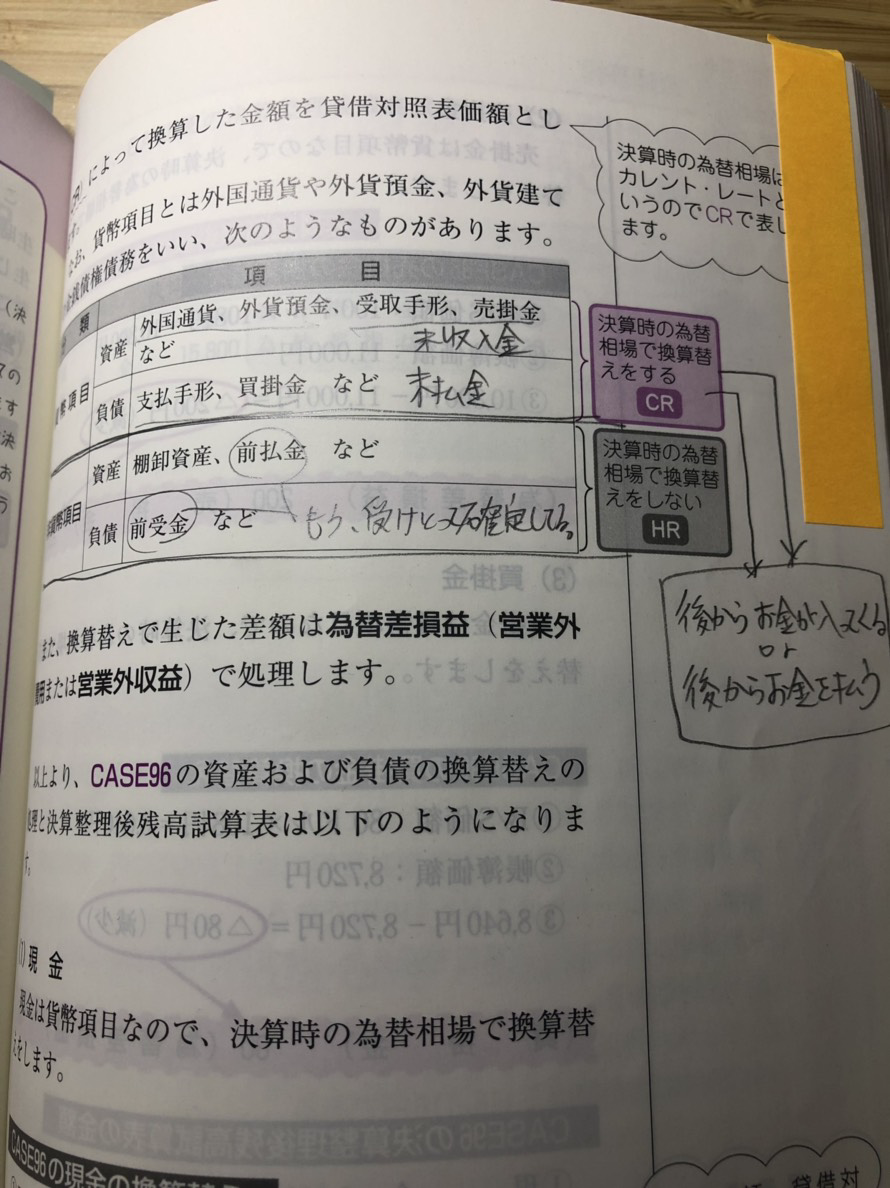 によって換算した金額を貸借対照表価額とし
なお、貨幣項目とは外国通貨や外貨預金、外貨建て
金銭債権債務をいい、次のようなものがあります。
決算時の為替相場は
カレント・レートと
いうのでCRで表し
ます。
類 項 目
資産 外国通貨、外貨預金、受取手形、売掛金
など 未収入金
幣項目
負債 支払手形、買掛金 など 未払金
決算時の為替
相場で換算替
えをする
CR
資産 棚卸資産、前払金 など
貨幣項目
負債 前受金 など もう、受けとって確定してる。
決算時の為替
相場で換算替
えをしない
HR
後からお金が入ってくる
or
後からお金を払う
また、換算替えで生じた差額は為替差損益(営業外
費用または営業外収益)で処理します。
以上より、CASE96の資産および負債の換算替えの
処理と決算整理後残高試算表は以下のようになりま
す。
(1) 現 金
現金は貨幣項目なので、決算時の為替相場で換算替
えをします。
CASE96の現金の換算替え
貸借対